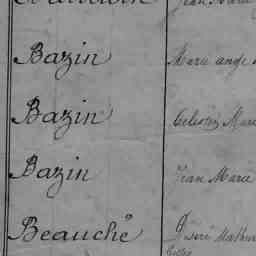 Jean Marie
Bazin Marie ange
Bazin Celestin Marie
Bazin Jean Marie
Beauché Désiré Mathurin